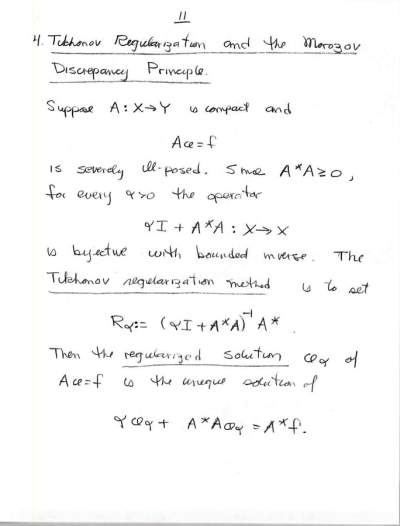 11
4. Tikhonov Regularization and the Morozov
Discrepancy Principle.
Suppose A : X → Y is compact and
Aφ = f
is severely ill-posed. Since A*A ≥ 0,
for every α > 0 the operator
αI + A*A : X → X
is bijective with bounded inverse. The
Tikhonov regularization method is to set
Rα := (αI + A*A)⁻¹ A*
Then the regularized solution φα of
Aφ = f is the unique solution of
αφα + A*Aφα = A*f.